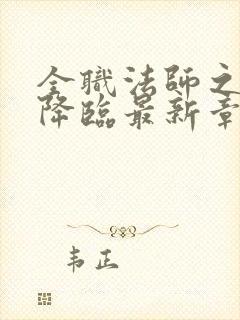 全職法師之
降臨最新章
韦正